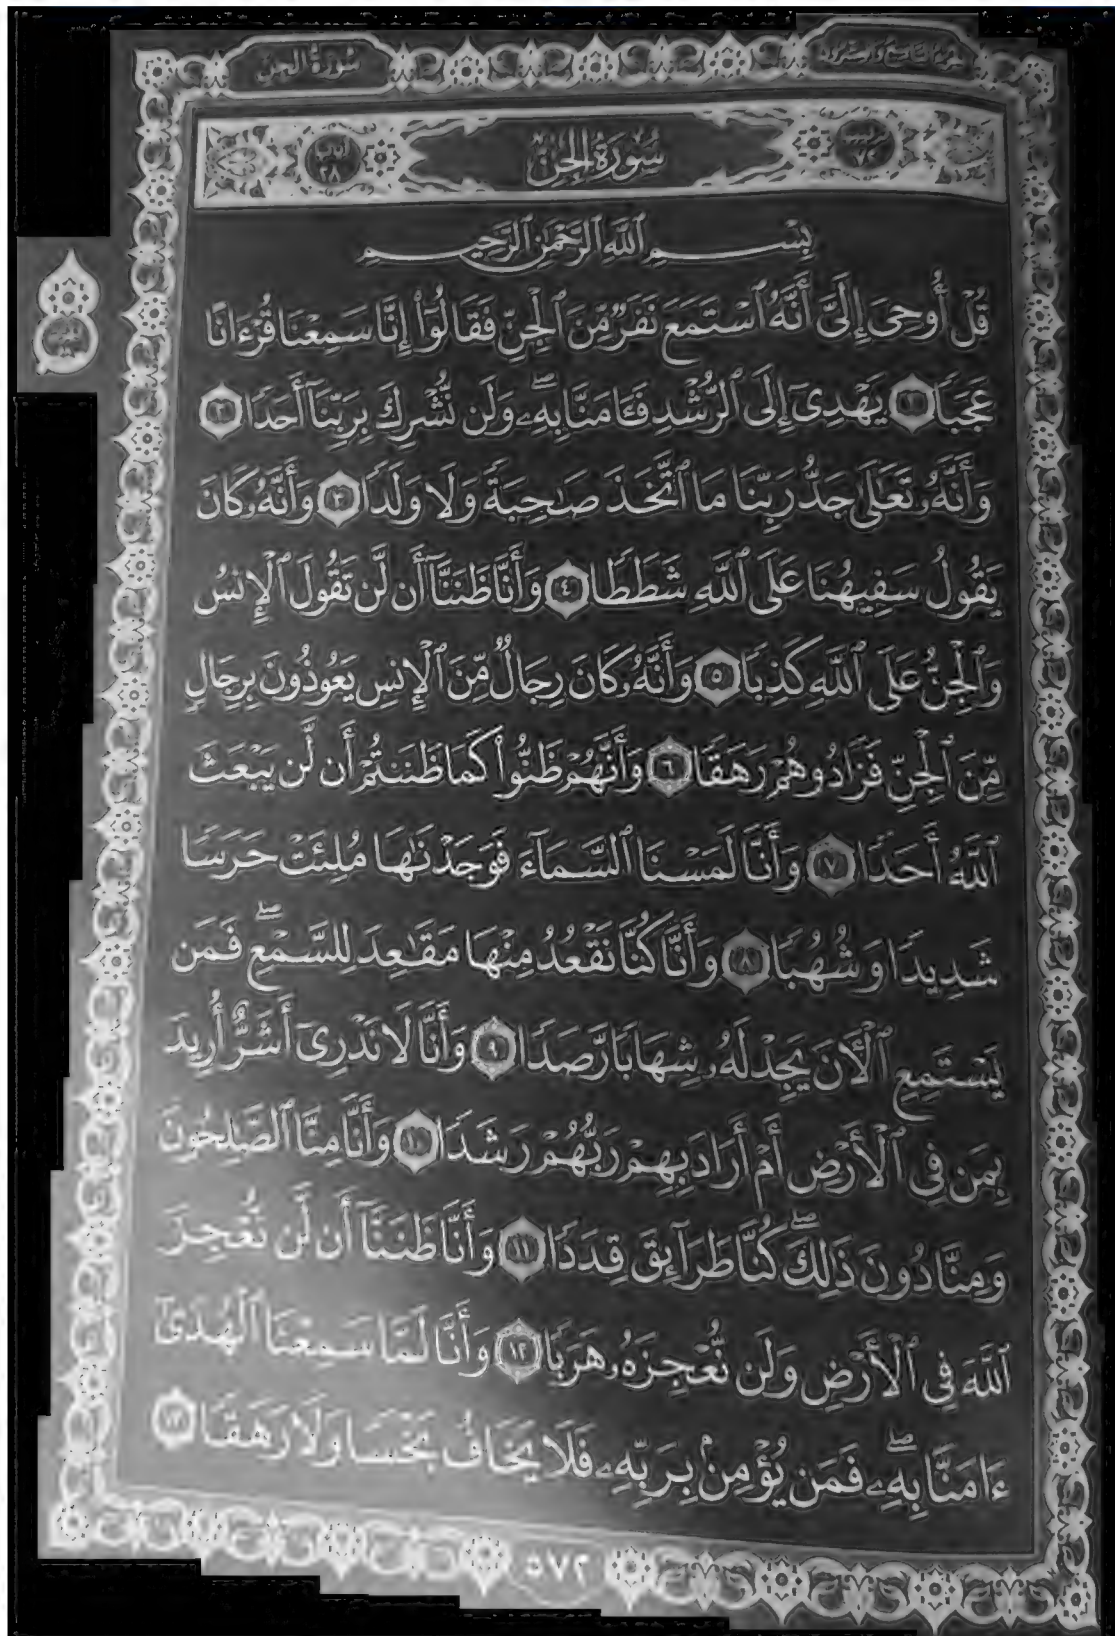 سُورَةُ الجِن
الجزء التاسع والعشرون
ترتيبها ٧٢
سُورَةُ الجِنّ
آياتها ٢٨
بِسْمِ ٱللَّهِ ٱلرَّحْمَٰنِ ٱلرَّحِيمِ
قُلْ أُوحِىَ إِلَىَّ أَنَّهُ ٱسْتَمَعَ نَفَرٌ مِّنَ ٱلْجِنِّ فَقَالُوٓا۟ إِنَّا سَمِعْنَا قُرْءَانًا
عَجَبًا ١ يَهْدِىٓ إِلَى ٱلرُّشْدِ فَـَٔامَنَّا بِهِۦ ۖ وَلَن نُّشْرِكَ بِرَبِّنَآ أَحَدًا ٢
وَأَنَّهُۥ تَعَٰلَىٰ جَدُّ رَبِّنَا مَا ٱتَّخَذَ صَٰحِبَةً وَلَا وَلَدًا ٣ وَأَنَّهُۥ كَانَ
يَقُولُ سَفِيهُنَا عَلَى ٱللَّهِ شَطَطًا ٤ وَأَنَّا ظَنَنَّآ أَن لَّن تَقُولَ ٱلْإِنسُ
وَٱلْجِنُّ عَلَى ٱللَّهِ كَذِبًا ٥ وَأَنَّهُۥ كَانَ رِجَالٌ مِّنَ ٱلْإِنسِ يَعُوذُونَ بِرِجَالٍ
مِّنَ ٱلْجِنِّ فَزَادُوهُمْ رَهَقًا ٦ وَأَنَّهُمْ ظَنُّوا۟ كَمَا ظَنَنتُمْ أَن لَّن يَبْعَثَ
ٱللَّهُ أَحَدًا ٧ وَأَنَّا لَمَسْنَا ٱلسَّمَآءَ فَوَجَدْنَٰهَا مُلِئَتْ حَرَسًا
شَدِيدًا وَشُهُبًا ٨ وَأَنَّا كُنَّا نَقْعُدُ مِنْهَا مَقَٰعِدَ لِلسَّمْعِ ۖ فَمَن
يَسْتَمِعِ ٱلْـَٔانَ يَجِدْ لَهُۥ شِهَابًا رَّصَدًا ٩ وَأَنَّا لَا نَدْرِىٓ أَشَرٌّ أُرِيدَ
بِمَن فِى ٱلْأَرْضِ أَمْ أَرَادَ بِهِمْ رَبُّهُمْ رَشَدًا ١٠ وَأَنَّا مِنَّا ٱلصَّٰلِحُونَ
وَمِنَّا دُونَ ذَٰلِكَ ۖ كُنَّا طَرَآئِقَ قِدَدًا ١١ وَأَنَّا ظَنَنَّآ أَن لَّن نُّعْجِزَ
ٱللَّهَ فِى ٱلْأَرْضِ وَلَن نُّعْجِزَهُۥ هَرَبًا ١٢ وَأَنَّا لَمَّا سَمِعْنَا ٱلْهُدَىٰٓ
ءَامَنَّا بِهِۦ ۖ فَمَن يُؤْمِنۢ بِرَبِّهِۦ فَلَا يَخَافُ بَخْسًا وَلَا رَهَقًا ١٣
٥٧٢